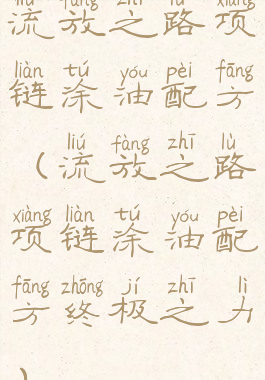 liú fàng zhī lù xiàng
流放之路项
liàn tú yóu pèi fāng
链涂油配方
liú fàng zhī lù
（流放之路
xiàng liàn tú yóu pèi
项链涂油配
fāng zhōng jí zhī lì
方终极之力
）